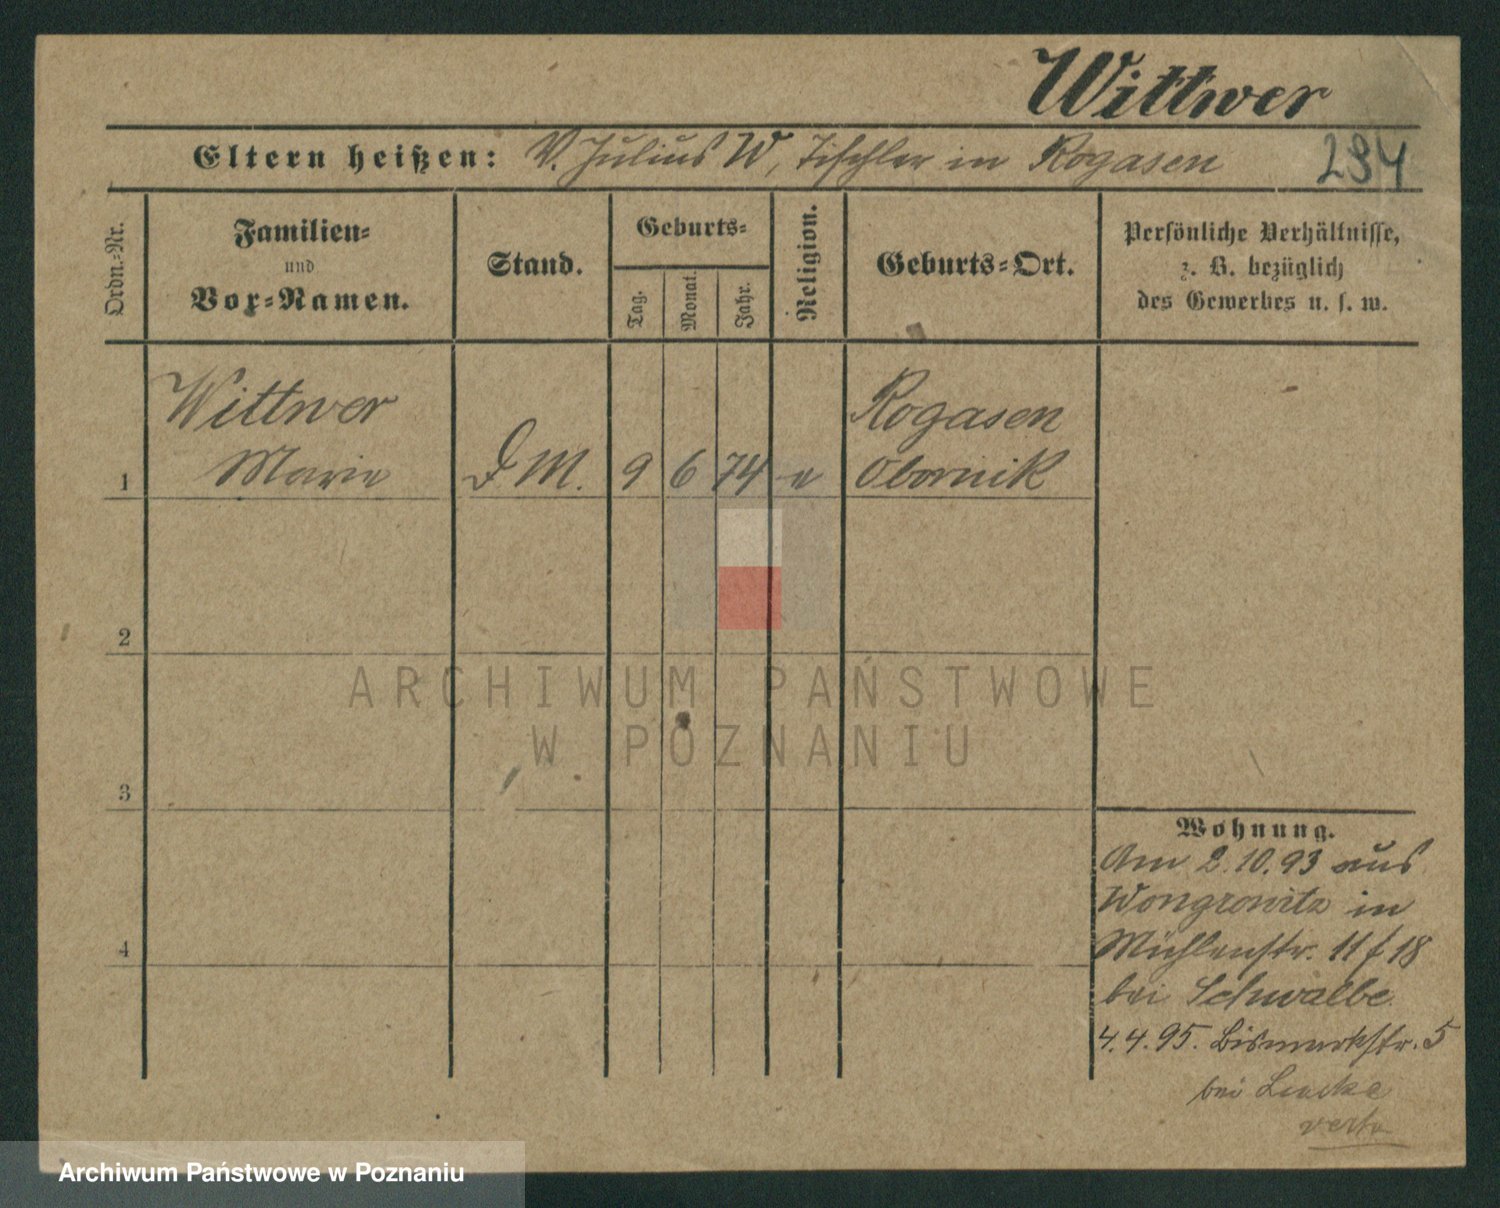 Wittwer
Eltern heißen: V. Julius W, Tischler in Rogasen 294
Ordn.-Nr.
Familien-
und
Vor-Namen.
Stand.
Geburts-
Tag.
Monat.
Jahr.
Religion.
Geburts-Ort.
Persönliche Verhältnisse,
z. B. bezüglich
des Gewerbes u. s. w.
Wittwer Rogasen
1 Marie D. M. 9 6 74 e Obornik
2
3
4
Wohnung.
Am 2.10.93 aus
Wongrowitz in
Mühlenstr. 11 f 18
bei Schwalbe
4.4.95. Bismarkstr. 5
bei
verte
ARCHIWUM PAŃSTWOWE
W POZNANIU
Archiwum Państwowe w Poznaniu